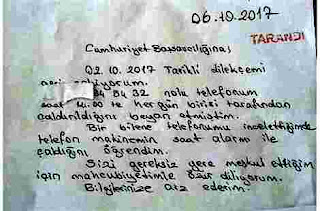 06.10.2017
TARANDI
Cumhuriyet Başsavcılığına;
02.10.2017 Tarihli dilekçemi
geri çekiyorum.
84 32 nolu telefonum
saat 00 te hergün birisi tarafından
çaldırıldığını beyan etmiştim.
Bir bilene telefonumu incelettiğimde
telefon makinemin saat alarmı ile
çaldığını öğrendim.
Sizi gereksiz yere meşkul ettiğim
için mahcubiyetimle özür diliyorum.
Bilgilerinize arz ederim.